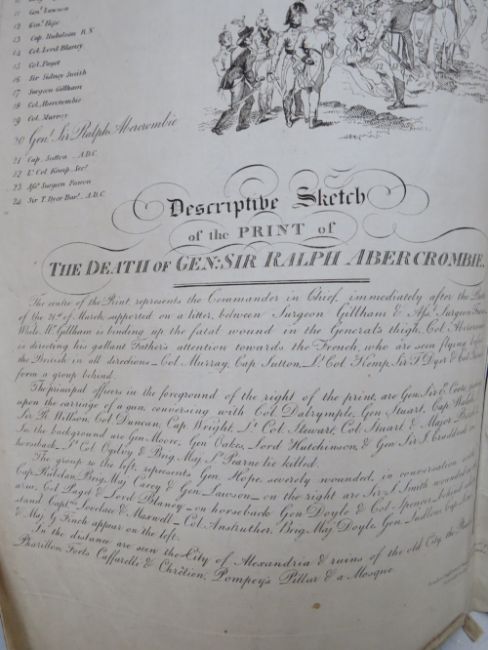 11 Gen.l Lawson
12 Gen.l Hope
14 Col. Lord Blaney
15 Col. Paget
16 Sir Sidney Smith
17 Surgeon Gillham
18 Col. Abercrombie
19 Col. Murray
20 Gen.l Sir Ralph Abercrombie
21 Cap. Sutton _ A.D.C.
22 L.t Col. Kemp, Sec.y
23 Ass.t Surgeon
24 Sir T. Dyer Bar.t _ A.D.C.
Descriptive Sketch
of the PRINT of
THE DEATH OF GEN: SIR RALPH ABERCROMBIE.
The centre of the Print, represents the Commander in Chief, immediately after the
of the 21.st of March, supported on a litter, between Surgeon Gillham & Ass.t Surgeon
While M.r Gillham is binding up the fatal wound in the Generals thigh, Col. Abercrom
is directing his gallant Father's attention towards the French, who are seen flying before
the British in all directions _ Col. Murray, Cap. Sutton, L.t Col. Kemp, Sir T. Dyer &
form a group behind.
The principal officers in the foreground of the right of the print, are Gen. Sir E. Coote
upon the carriage of a gun, conversing with Col. Dalrymple, Gen. Stuart, Cap.
Sir R. Willson, Col. Duncan, Cap. Wright, L.t Col. Stewart, Col. Stuart & Major
In the background are Gen. Moore, Gen. Oakes, Lord Hutchinson, & Gen. Sir
horseback _ L.t Col. Ogilvy & Brig. Maj. killed.
The group to the left, represents Gen. Hope, severely wounded, in conversation with
Cap. Brig. Maj. & Gen. Lawson _ on the right are Sir S. Smith wounded in
arm, Col. Paget & Lord Blaney _ on horseback Gen. Doyle & Col. Spencer, behind
stand Cap.ns Lovelace & Maxwell _ Col. Anstruther, Brig. Maj. Doyle, Gen. Ludlow, Cap.
& Maj. G. Finch appear on the left.
In the distance are seen the City of Alexandria & ruins of the old City, the
Pharillon, Forts Caffarelle & Chrétien, Pompey's Pillar & a Mosque